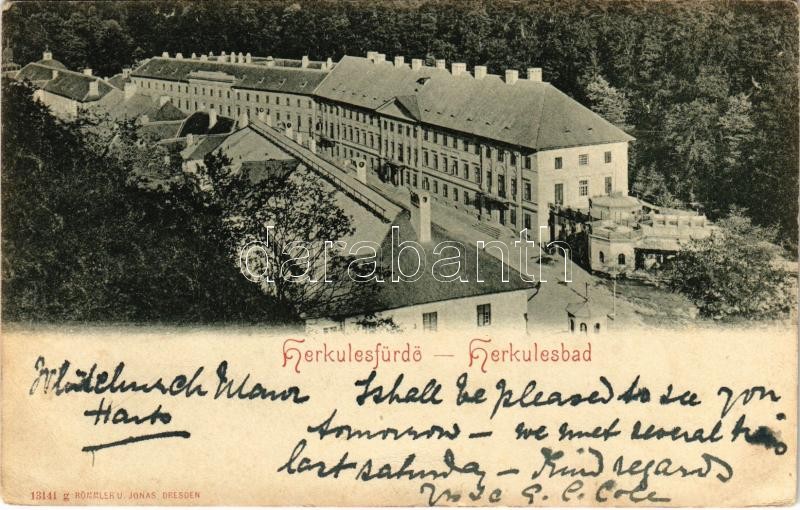 darabanth
Herkulesfürdő — Herkulesbad
Manor
Harts
I shall be pleased to see you
tomorrow — we met several
last saturday — Kind regards
A. C. Cole
13141 g RÖMMLER U. JONAS, DRESDEN